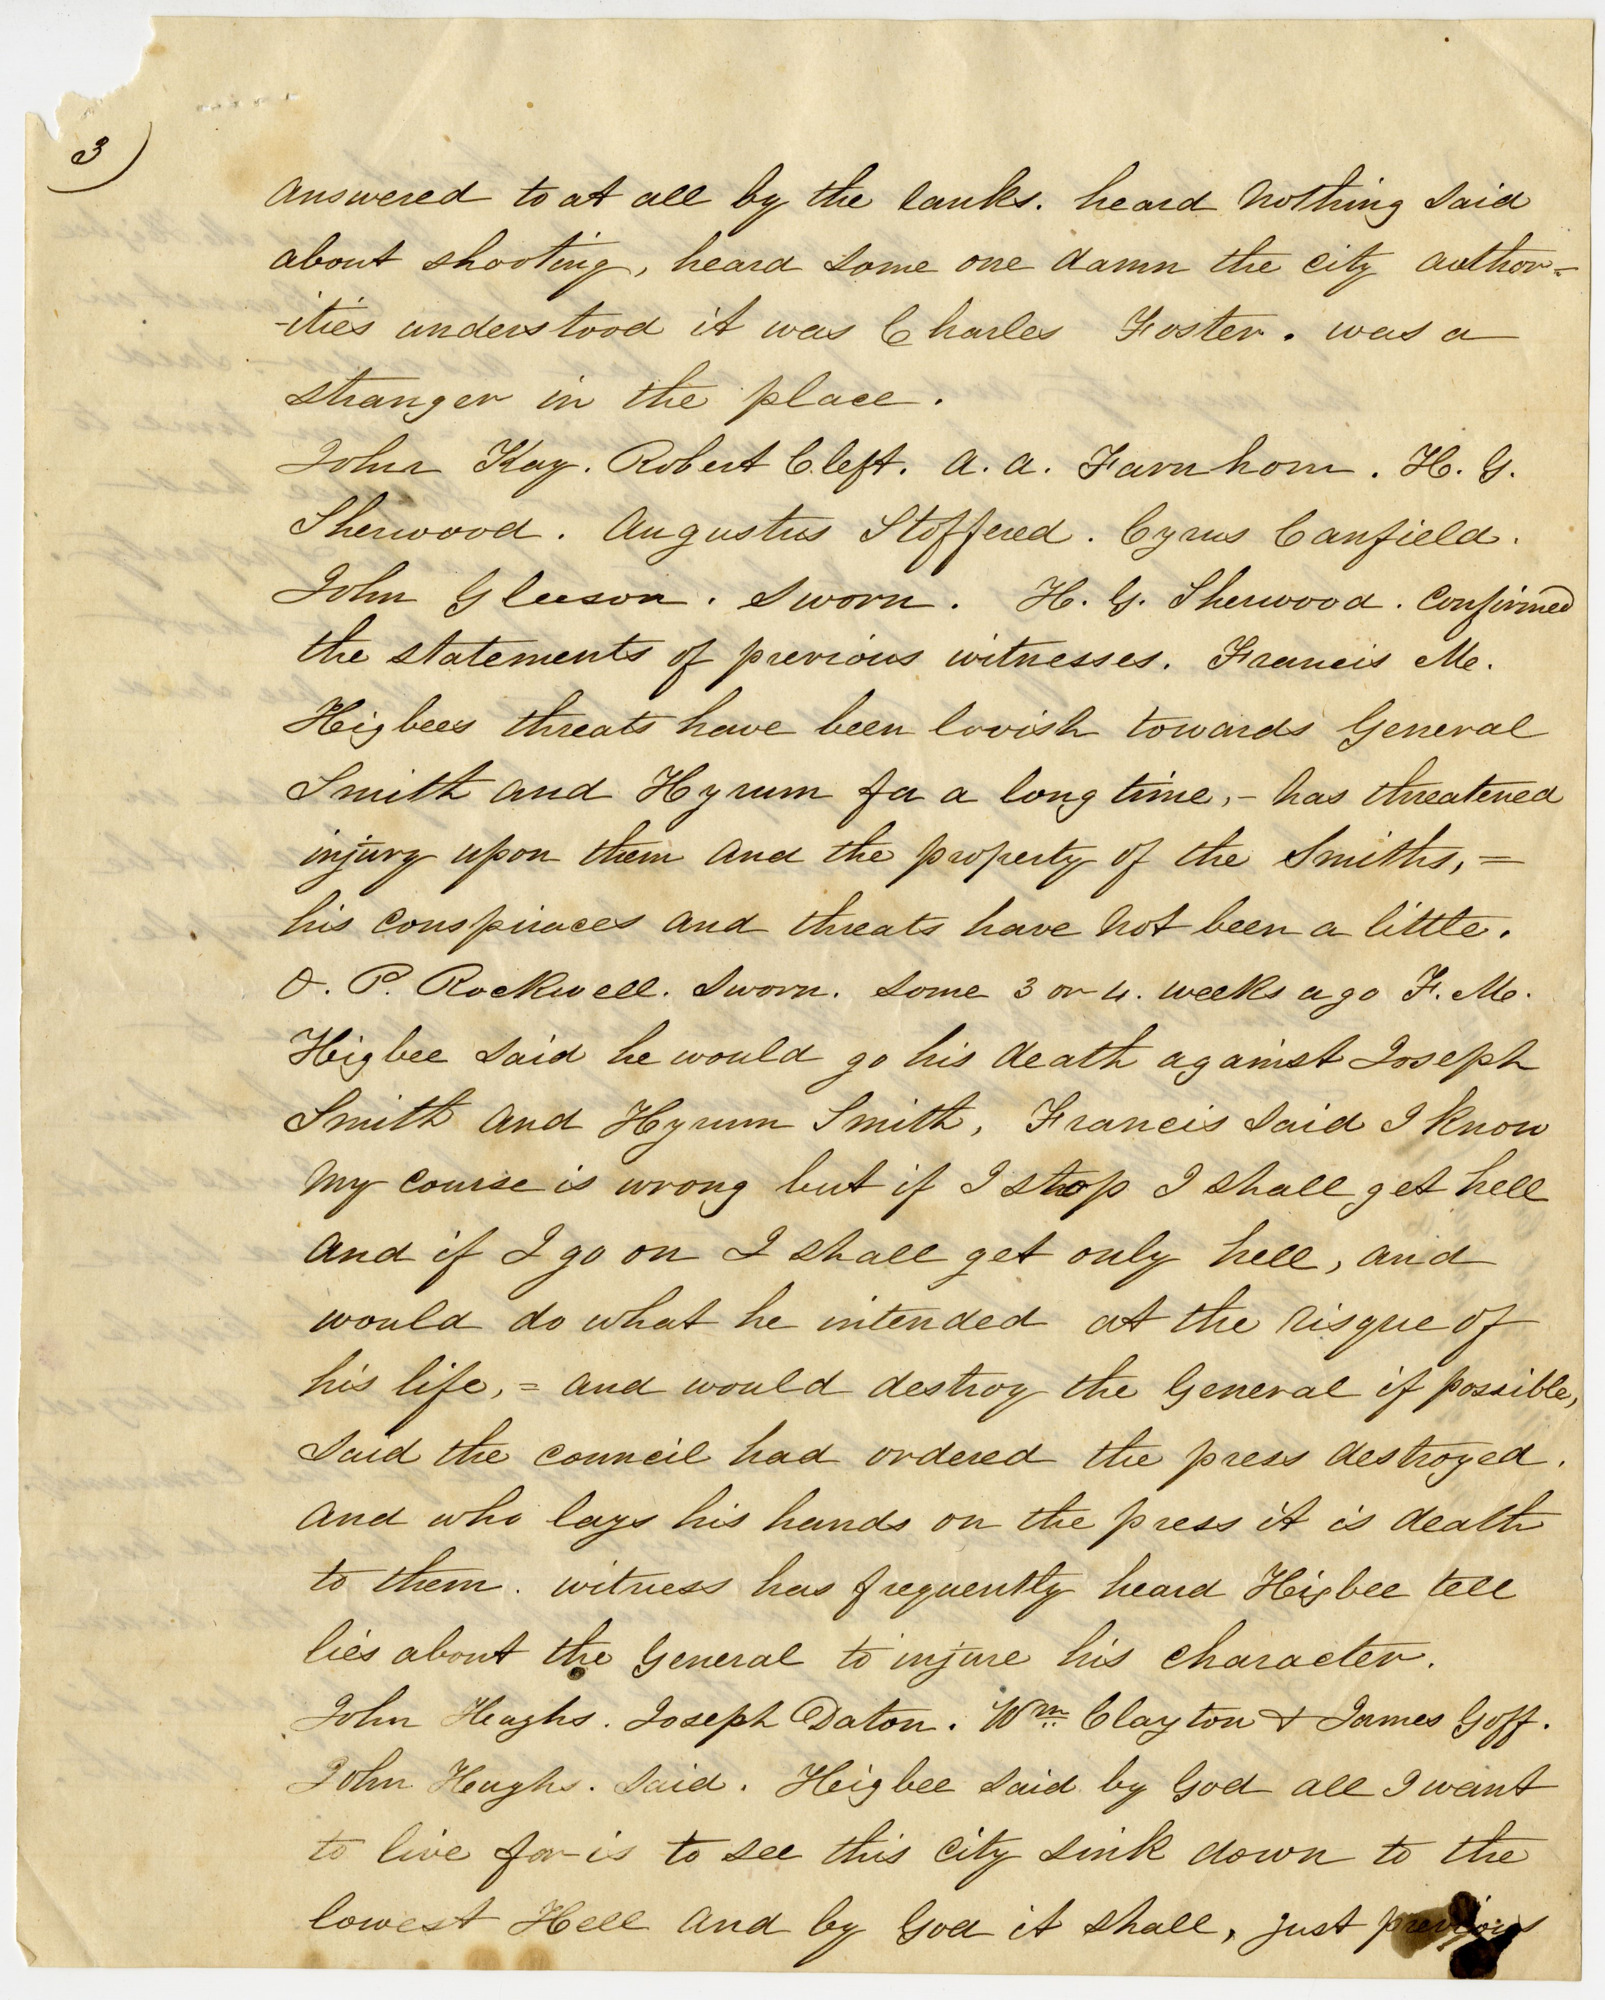 3)
answered to at all by the ranks. heard nothing said
about shooting, heard some one damn the city author=
-ities understood it was Charles Foster. was a
stranger in the place.
John Kay. Robert Cleft. A. A. Farnhom. H. G.
Sherwood. Augustus Stoffered. Cyrus Canfield.
John Gleeson. Sworn. H. G. Sherwood. confirmed
the statements of previous witnesses. Francis M.
Higbees threats have been lavish towards General
Smith and Hyrum for a long time, - has threatened
injury upon them and the property of the Smiths, =
his conspiraces and threats have not been a little.
O. P. Rockwell. Sworn. Some 3 or 4. weeks ago F. M.
Higbee said he would go his death against Joseph
Smith and Hyrum Smith, Francis said I know
my course is wrong but if I stop I shall get hell
and if I go on I shall get only hell, and
would do what he intended at the risque of
his life, = and would destroy the General if possible,
said the council had ordered the press destroyed.
and who lays his hands on the press it is death
to them. witness has frequently heard Higbee tell
lies about the General to injure his character.
John Heughs. Joseph Daton. Wm Clayton & James Goff.
John Heughs. Said. Higbee said by God all I want
to live for is to see this city sink down to the
lowest Hell and by God it shall, just previous